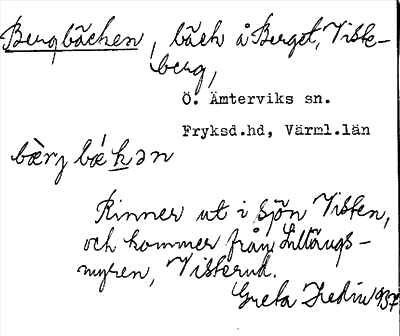 Bergbäcken, bäck å Berget, Viske-
berg,
Ö. Ämterviks sn.
Fryksd.hd, Värml.län
bærj bækən
Rinner ut i sjön Visten,
och kommer från Lillängs-
myren, Viskerud.
Greta Hedin 1937